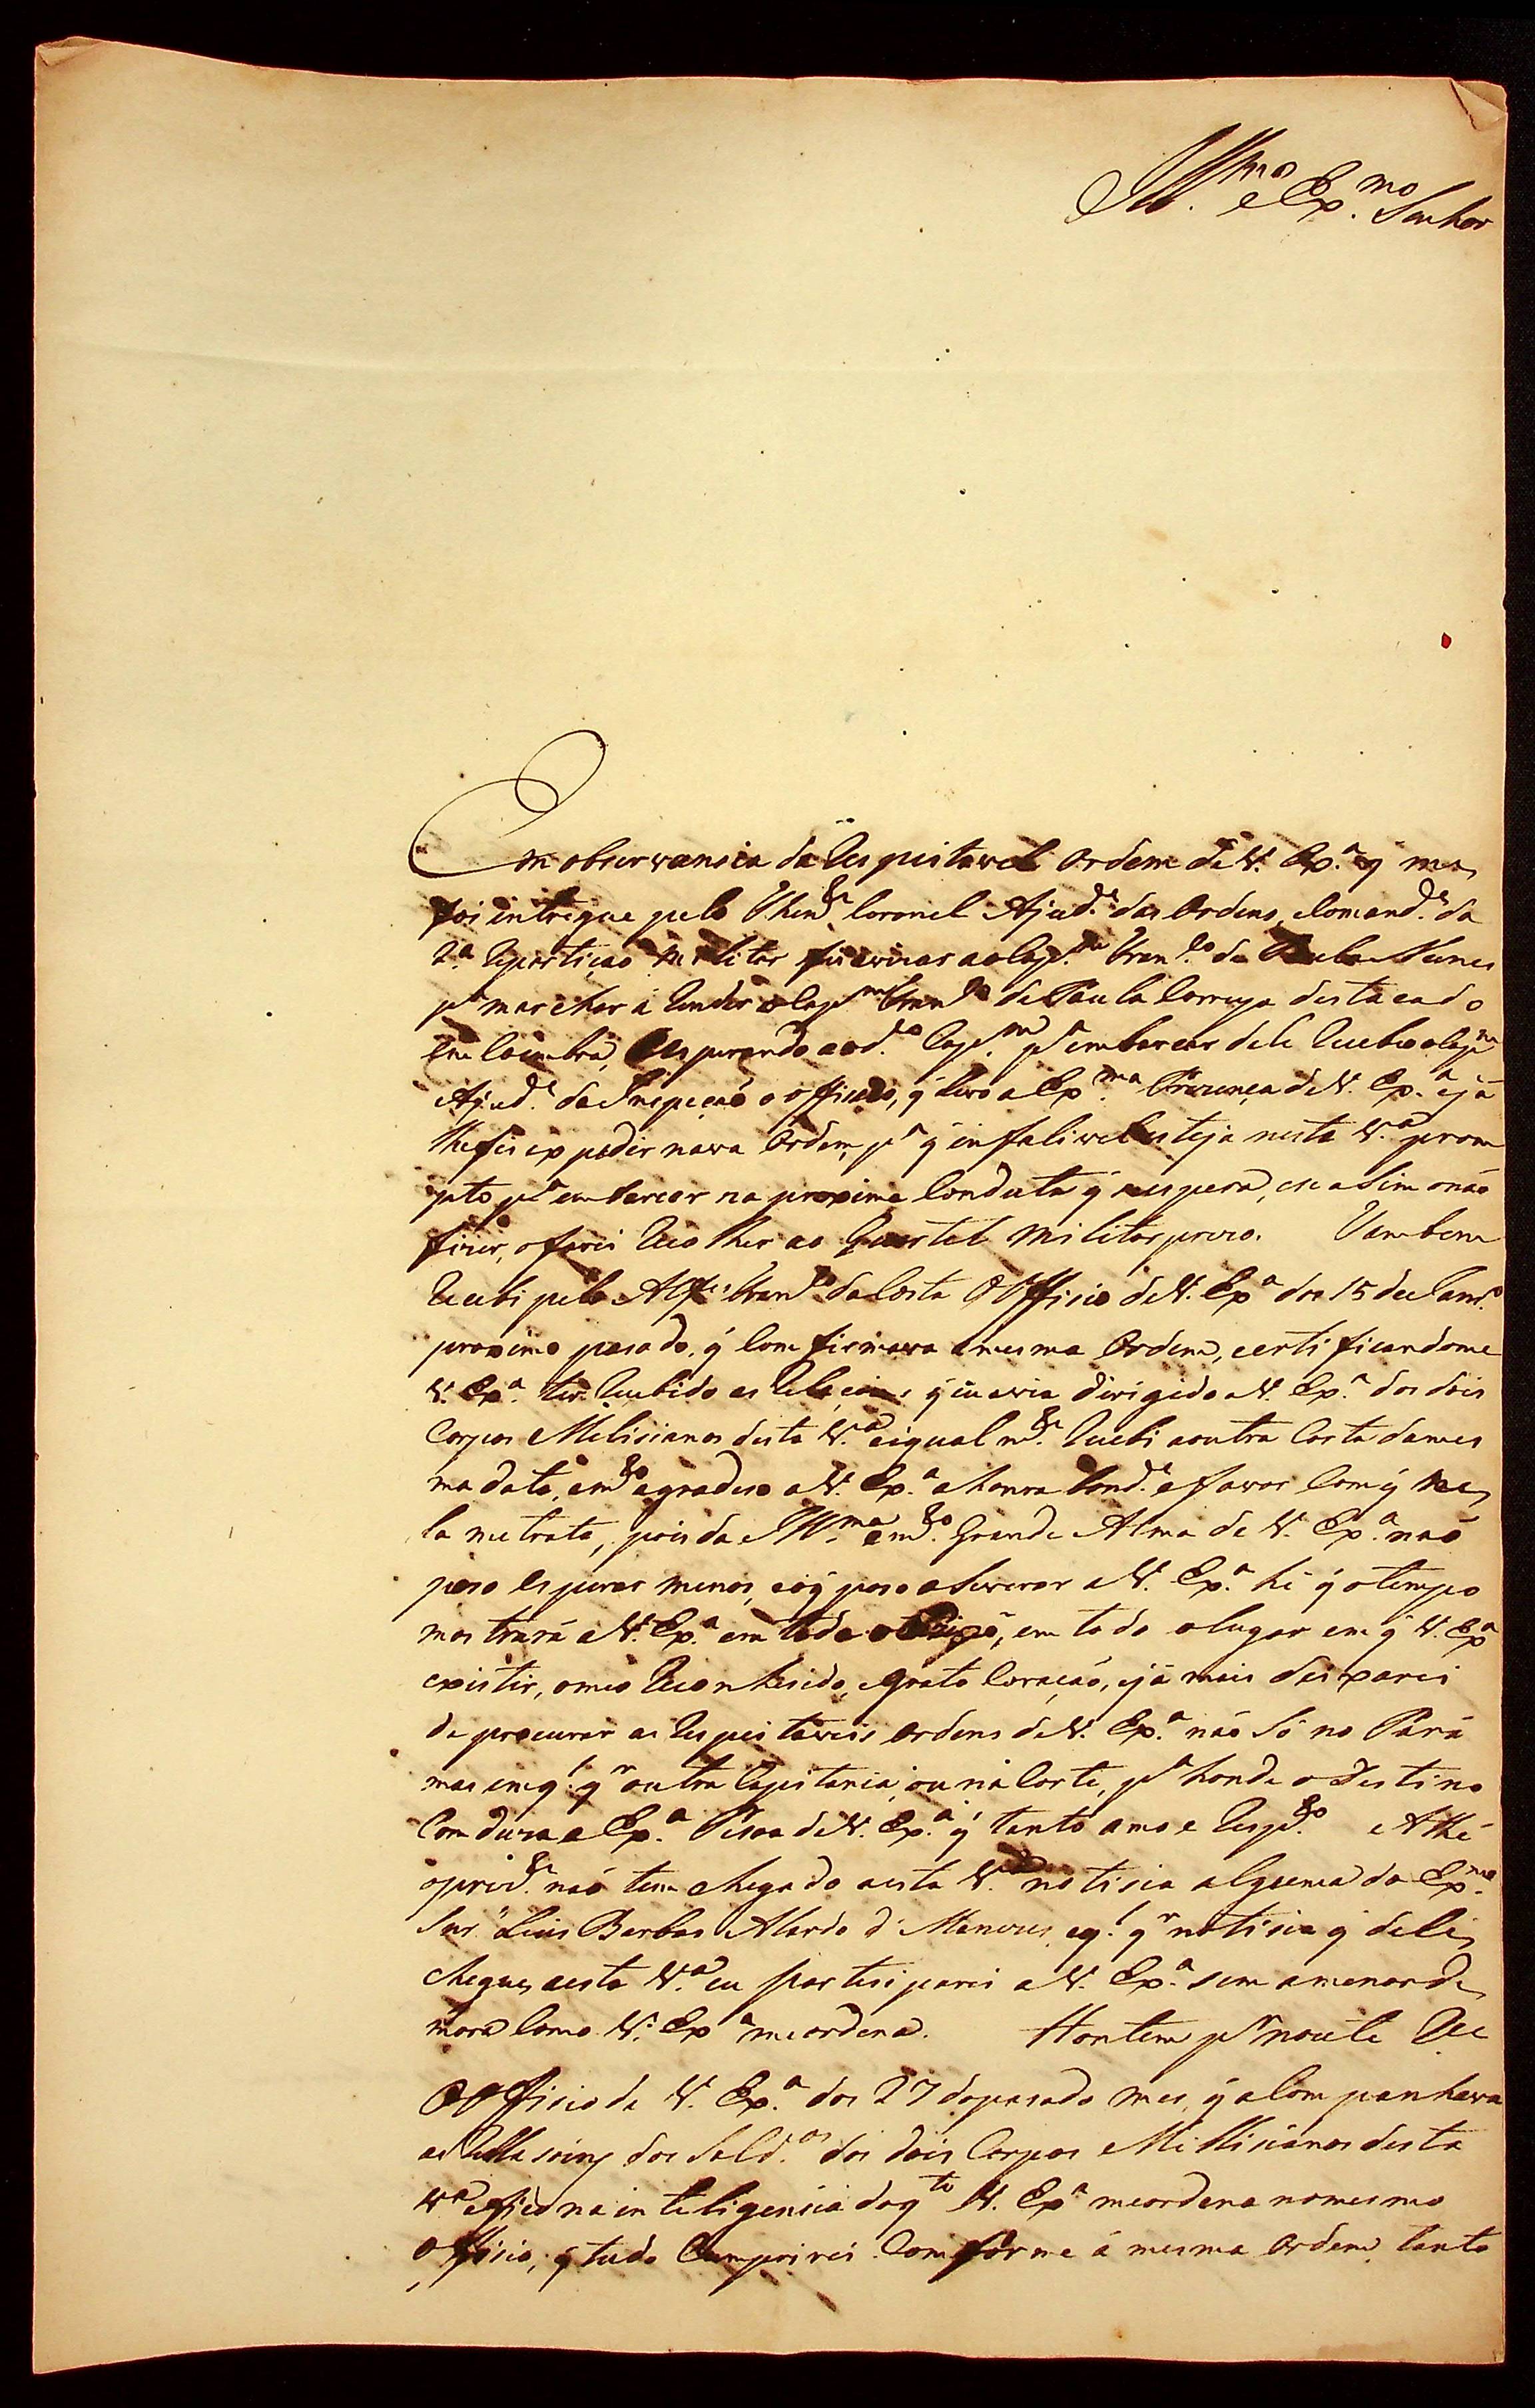 Ill.mo e Ex.mo Senhor
Em observancia da Respeitavel Ordem de V. Ex.a q̃ me
foi intregue pelo Then.te Coronel Ajud.e das Ordens, e Comand.e da
2.a Repartição Militar fis avizar ao Cap.m Fran.co de Paula Nunes
p.a marchar a Render o Cap.m Fran.co de Paula Correya destacado
em Coimbra, Esperando ao d.o Cap.m p.a embarcar dele Recebeo o Cap.m
Ajud.e da Inspeção o officio, q̃ levo a Ex.ma Prezença de V. Ex.a e já
lhe fis expedir nova Ordem, p.a q̃ infalivel esteja nesta V.a prom
pto p.a embarcar na proxima Conduta q̃ se espera, e se asim o não
fizer, o farei Recolher ao Quartel Militar prezo. Tambem
Recebi pelo Alf.es Fran.co da Costa O Officio de V. Ex.a dos 15 de Jan.ro
proximo pasado, q̃ Comfirmava a mesma Ordem, certificandome
V. Ex.a ter Recebido as Relaçoins q̃ eu avia dirigido a V. Ex.a dos dois
Corpos Melisianos desta V.a e igual m.te Recebi a outra Carta da mes
ma data, e m.to agradeso a V. Ex.a a honra bond.e e favor Com q̃ ne
la me trata, pois da Ill.ma e m.to Grande Alma de V. Ex.a não
poso esperar menos, e o q̃ poso aseverar a V. Ex.a hé q̃ o tempo
mostrará a V. Ex.a em todo o tempo, em todo o lugar em q̃ V. Ex.a
existir, o meo Reconhesido, e grato Coração, e já mais deixarei
de procurar as Respeitaveis Ordens de V. Ex.a não Só no Pará
mas em q.l q.r outra Capitania, ou na Corte, p.a honde o Destino
Conduza a Ex.a Pesoa de V. Ex.a q̃ tanto amo e Resp.to Athé
o prez.te não tem chegado a esta V.a notisia alguma do Ex.mo
Snr. Luis Barba Alardo d' Menezes, e q.l q.r notisia q̃ dele
chegue a esta V.a eu partisiparei a V. Ex.a sem a menor de
mora Como V. Ex.a me ordena. Hontem p.a noute Re
O Officio de V. Ex.a dos 27 do pasado mes, q̃ a Companhava
as Rellasoins dos Sold.os dos dois Corpos Millisianos desta
V.a e fico na inteligencia do q.to V. Ex.a me ordena no mesmo
Officio, q̃ tudo Cumprirei Comforme á mesma Ordem, tanto